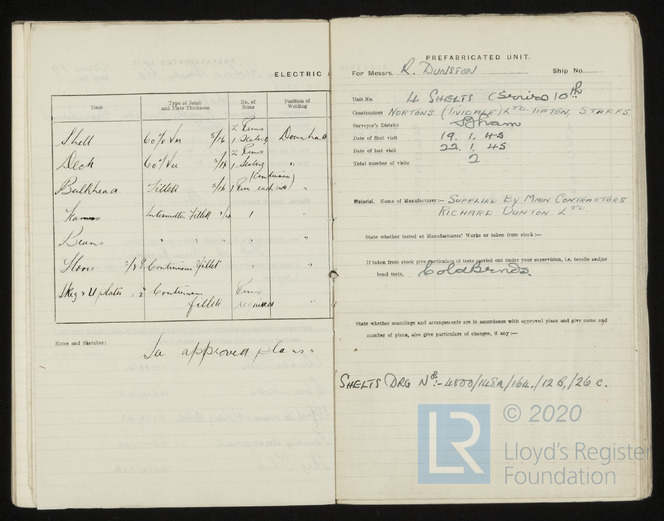 ELECTRIC
Item
Type of Joint and Plate Thickness
No. of Runs
Position of Welding
Shell 60° Vee 5/16 2 Runs 1 Sealing Downhand
Deck 60° Vee 5/16 2 Runs 1 Sealing "
Bulkhead Fillett 3/16 1 Run each side (Continuous) "
Frames Intermittent Fillett 3/16 1 "
Beams " " " " "
Floors Continuous fillet "
Skeg & U plates Continuous fillett Runs required "
Notes and Sketches:
See approved plans.
PREFABRICATED UNIT.
For Messrs. R. DUNSTON Ship No.
Unit No. 4 SHELTS (Series 10th
Constructors NORTONS (TIVIDALE) LTD TIPTON, STAFFS.
Surveyor's District B'ham
Date of first visit 19. 1. 45
Date of last visit 22. 1. 45
Total number of visits 2
Material. Name of Manufacturer:- SUPPLIED BY MAIN CONTRACTORS
RICHARD DUNTON LTD
State whether tested at Manufacturers' Works or taken from stock :—
If taken from stock give particulars of tests carried out under your supervision, i.e. tensile and/or
bend tests. Cold Bends.
State whether scantlings and arrangements are in accordance with approved plans and give name and
number of plans, also give particulars of changes, if any :—
SHELTS DRG Nos:- 4500/148A/164/12B/26c.
LR
© 2020
Lloyd's Register
Foundation